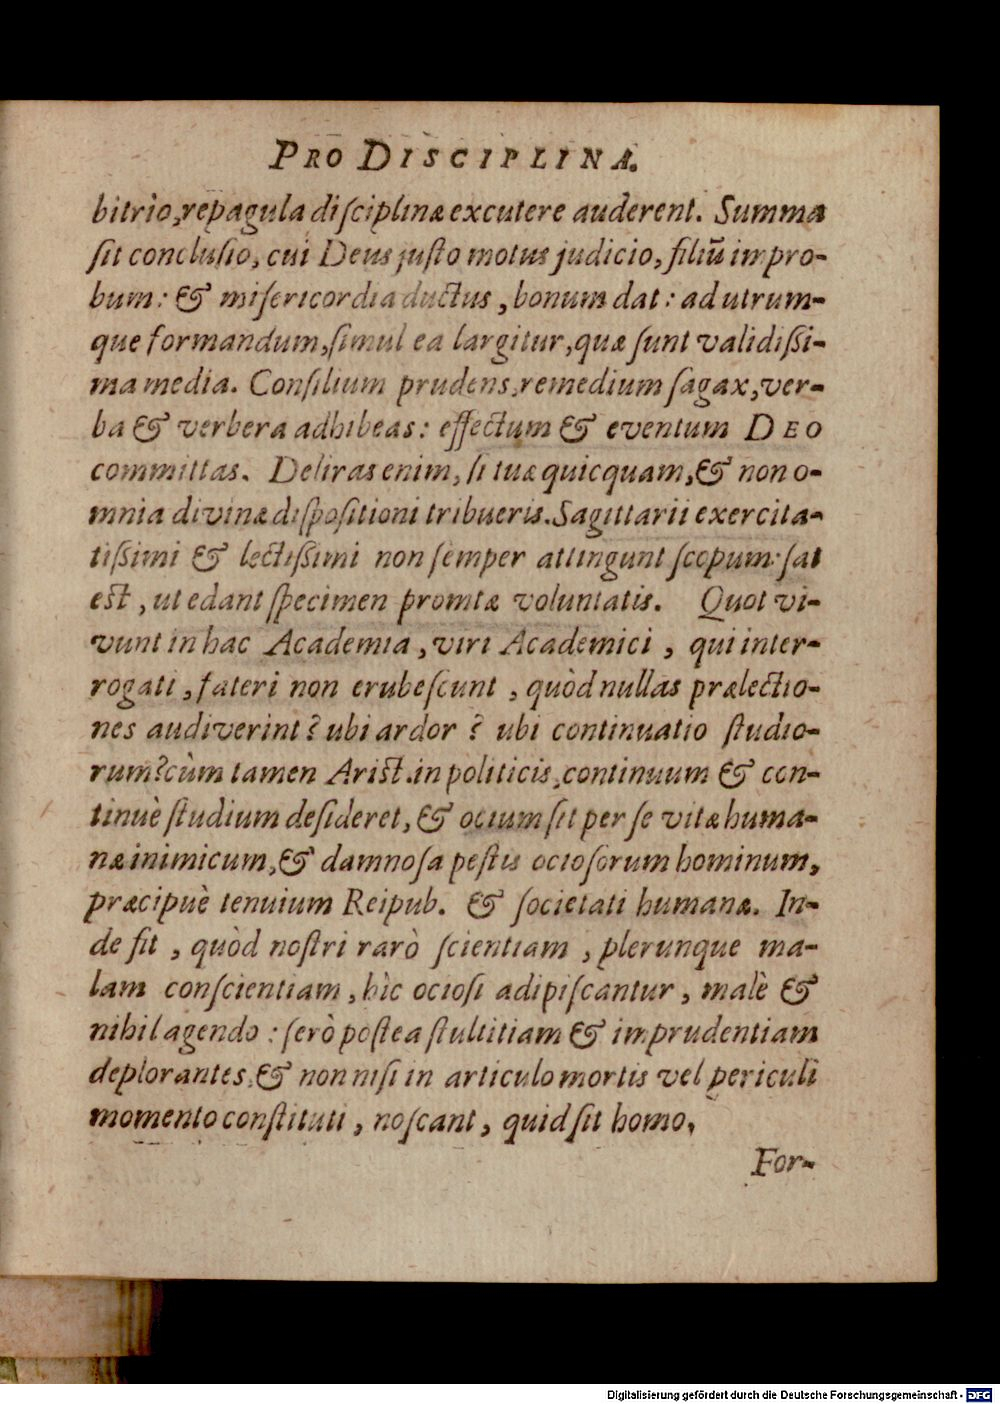 PRO DISCIPLINA.
bitrìo, repagula diſciplinæ excutere auderent. Summa
ſit concluſio, cui Deus juſto motus judicio, filiū impro-
bum: & miſericordia ductus, bonum dat: ad utrum-
que formandum, ſimul ea largitur, quæ ſunt validiſſi-
ma media. Conſilium prudens, remedium ſagax, ver-
ba & verbera adhibeas: effectum & eventum DEO
committas. Deliras enim, ſi tuæ quicquam, & non o-
mnia divinæ diſpoſitioni tribueris. Sagittarii exercita-
tiſſimi & lectiſſimi non ſemper attingunt ſcopum: ſat
eſt, ut edant ſpecimen promtæ voluntatis. Quot vi-
vunt in hac Academia, viri Academici, qui inter-
rogati, fateri non erubeſcunt, quòd nullas prælectio-
nes audiverint? ubi ardor? ubi continuatio ſtudio-
rum? cùm tamen Ariſt. in politicis, continuum & con-
tinuè ſtudium deſideret, & ocium ſit per ſe vitæ huma-
næ inimicum, & damnoſa peſtis ocioſorum hominum,
præcipuè tenuium Reipub. & ſocietati humanæ. In-
de fit, quòd noſtri rarò ſcientiam, plerunque ma-
lam conſcientiam, hìc ocioſi adipiſcantur, malè &
nihil agendo: ſerò poſtea ſtultitiam & imprudentiam
deplorantes, & non niſi in articulo mortis vel periculi
momento conſtituti, noſcant, quid ſit homo,
For-
Digitalisierung gefördert durch die Deutsche Forschungsgemeinschaft - DFG